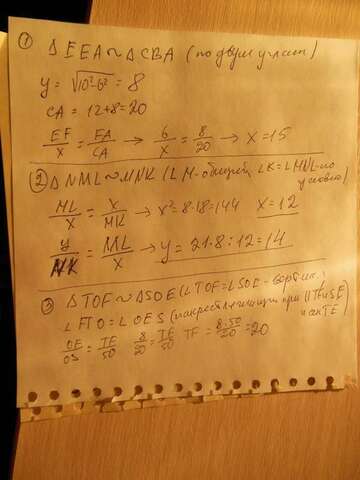 ① △ FEA ~ △ CBA (по двум углам)
y = √10²-6² = 8
CA = 12+8=20
EF/X = EA/CA → 6/X = 8/20 → X=15
② △ NML ~ MNK (∠M-общий ∠K=∠MNL-по условию)
ML/X = X/MK → X²=8·18=144 X=12
y/NK = ML/X → y=21·8:12=14
③ △ TOF ~ △SOE (∠TOF=∠SOE-верт-ые.
∠FTO=∠OES (накрест лежащи при TF и SE и сек TE)
OE/OS = TF/50 8/20 = TF/50 TF = 8·50/20 =20